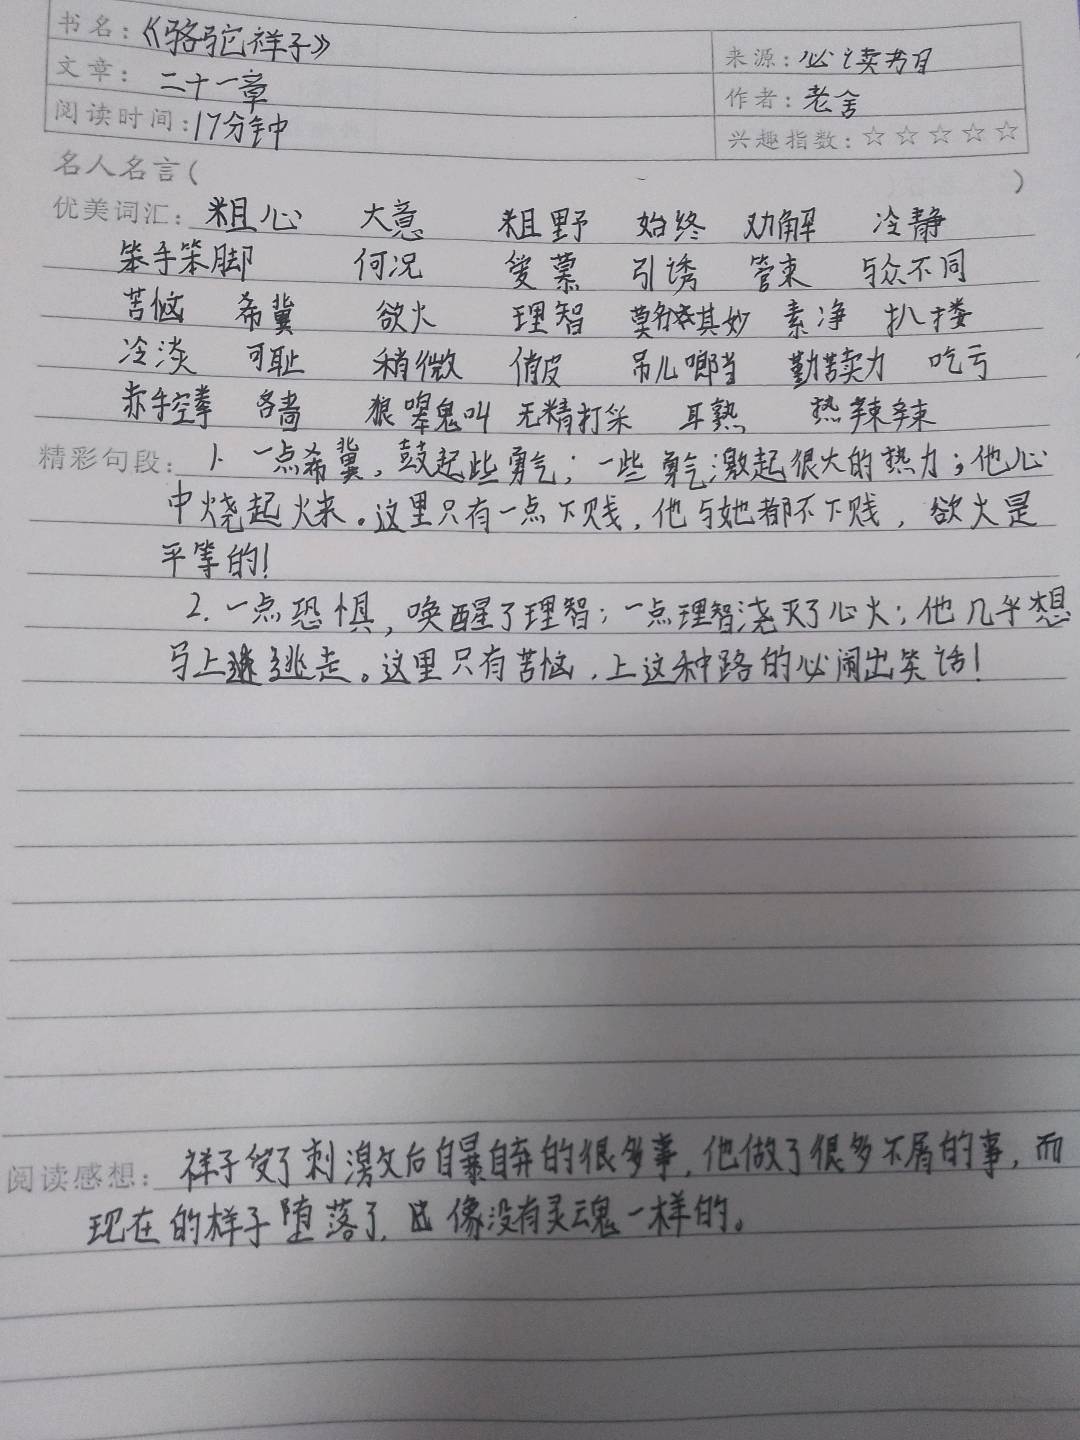 书名：《骆驼祥子》
来源：必读书目
文章：二十一章
作者：老舍
阅读时间：17分钟
兴趣指数：☆☆☆☆☆
名人名言（ ）
优美词汇：粗心 大意 粗野 始终 劝解 冷静
笨手笨脚 何况 爱慕 引诱 管束 与众不同
苦恼 希冀 欲火 理智 莫名其妙 素净 扒搂
冷淡 可耻 稍微 俏皮 吊儿啷当 勤苦卖力 吃亏
赤手空拳 吝啬 狼嗥鬼叫 无精打采 耳熟 热辣辣
精彩句段：1. 一点希冀，鼓起些勇气；一些勇气激起很大的热力；他心
中烧起火来。这里只有一点下贱，他与她都不下贱，欲火是
平等的！
2. 一点恐惧，唤醒了理智；一点理智浇灭了心火；他几乎想
马上逃走。这里只有苦恼，上这种路的必闹出笑话！
阅读感想：祥子受了刺激之后自暴自弃的很多事，他做了很多不屑的事，而
现在的样子堕落了，像没有灵魂一样的。